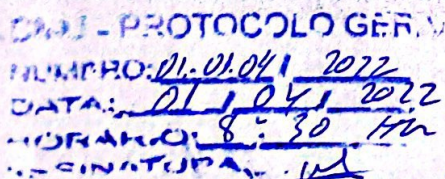 - PROTOCOLO GERAL
NUMERO: 01.01.04 / 2022
DATA: 01 / 04 / 2022
HORARIO: 8: 30 Hrs
ASSINATURA